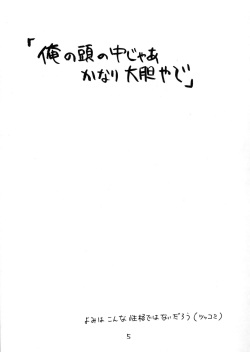 「俺の頭の中じゃあ
かなり大胆やで」
よみは こんな 性格ではないだろう (ツッコミ)
5